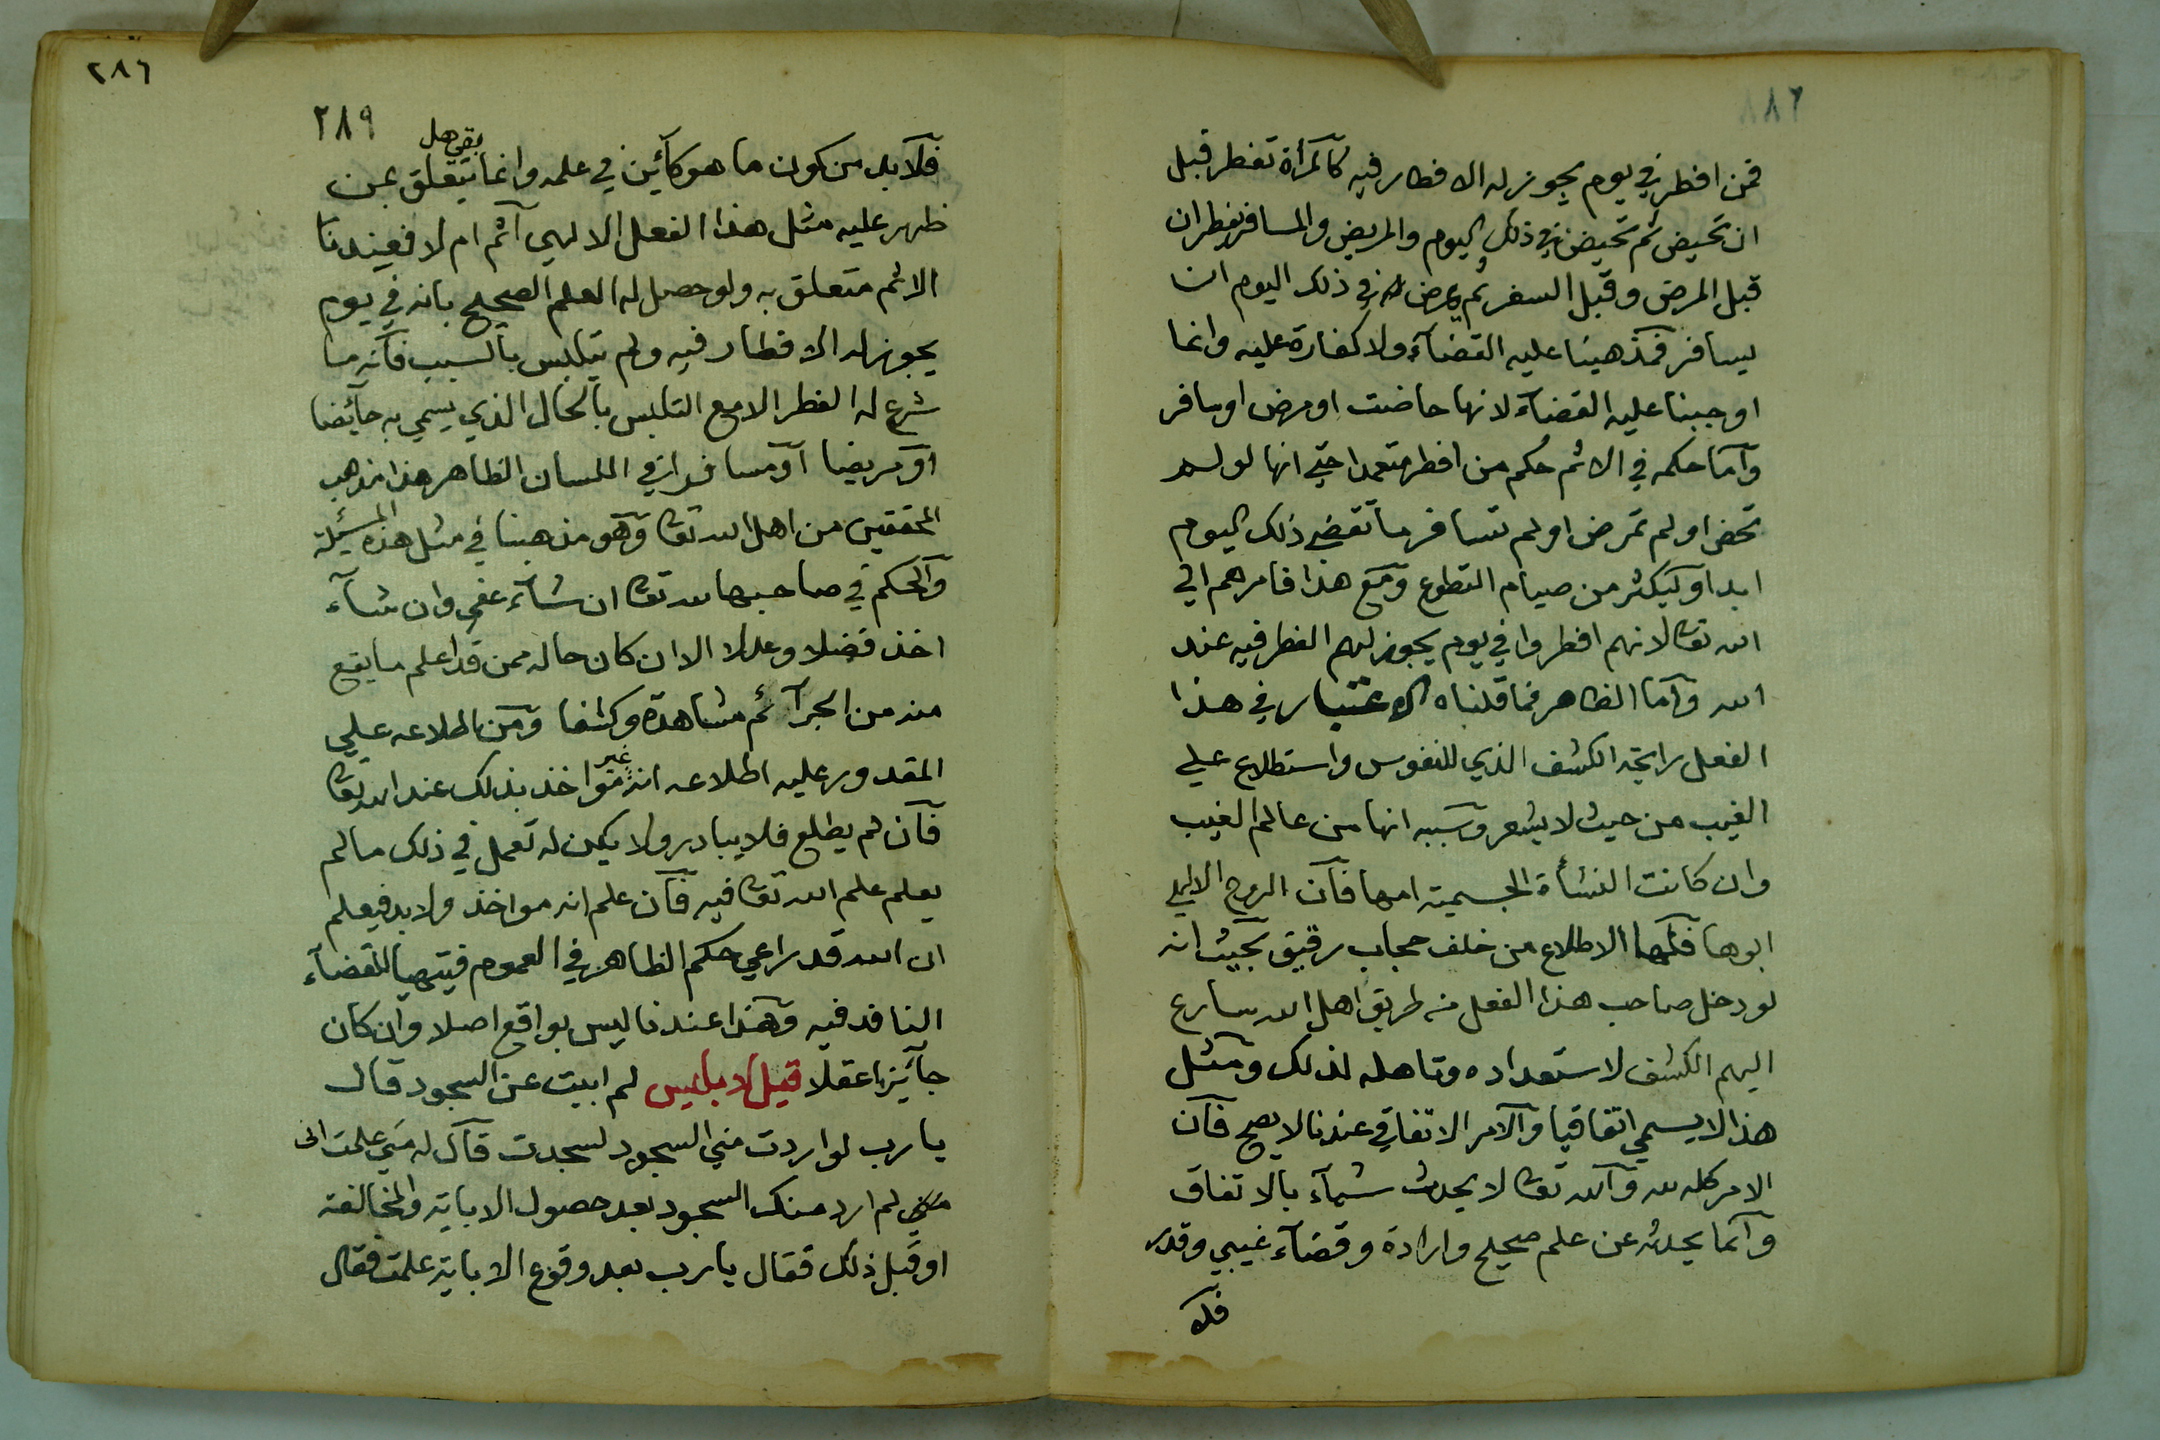 فمن افطر في يوم يجوز له الافطار فيه كالمرأة تفطر قبل
ان تحيض ثم تحيض في ذلك اليوم والمريض والمسافر يفطران
قبل المرض وقبل السفر ثم يمرض في ذلك اليوم ان
يسافر فمذهبنا عليه القضآء ولا كفارة عليه وانما
اوجبنا عليه القضآء لانها حاضت او مرض او سافر
وآما حكمه في الاثم حكم من افطر متعمدا حتي انها لو لم
تحض او لم تمرض او لم تسافر ما تقضي ذلك اليوم
ابدا وليكثر من صيام التطوع ومع هذا فامرهم الي
الله تعا لانهم افطروا في يوم يجوز لهم الفطر فيه عند
الله وآما الظاهر فما قلناه الاعتبار في هذا
الفعل رايحة الكشف الذي للنفوس واستطلاع علي
الغيب من حيث لا يشعر وسببه انها من عالم الغيب
وان كانت النشأة الجسمية امها فآن الروح الالهي
ابوها فلها الاطلاع من خلف حجاب رقيق بحيث انه
لو دخل صاحب هذا الفعل في طريق اهل الله سارع
اليهم الكشف لاستعداده وتاهله لذلك ومثل
هذا لا يسمي اتفاقيا وآلامر الاتفاقي عندنا لا يصح فآن
الامر كله لله وآلله تعا لا يحدث شيآء بالاتفاق
وآنما يحدثه عن علم صحيح وارادة وقضآء غيبي وقدر
فلا
٢٨٦
٢٨٩
بقي هل
فلآ بد من كون ما هو كآئن في علمه وانما يتعلق بمن
ظهر عليه مثل هذا الفعل الالهي آثم ام لا فعندنا
الاثم متعلق به ولو حصل له العلم الصحيح بانه في يوم
يجوز له الافطار فيه ولم يتلبس بالسبب فآنه ما
شرع له الفطر الا مع التلبس بالحال الذي يسمي به حآئضا
آو مريضا آو مسافرا في اللسان الظاهر هذا مذهب
المحققين من اهل الله تعا وهو مذهبنا في مثل هذه المسئلة
وآلحكم في صاحبها لله تعا ان شآء عفي وان شآء
اخذ فضلا وعدلا الا ان كان حاله ممن قد اعلم ما يقع
منه من الجرآئم مشاهدة وكشفا ومن اطلاعه علي
المقدور عليه اطلاعه انه غير مواخذ بذلك عند الله تعا
فآن لم يطلع فلا يبادر ولا يكن له تعمل في ذلك ما لم
يعلم علم الله تعا فيه فآن علم انه مواخذ ولا بد فيعلم
ان الله قد راعي حكم الظاهر في العموم فيتهيا للقضآء
النافد فيه وهذا عندنا ليس بواقع اصلا وان كان
جآئزا عقلا قيل لابليس لم ابيت عن السجود قال
يا رب لو اردت مني السجود لسجدت قآل له متي علمت اني
لم ارد منك السجود بعد حصول الاباية والمخالفة
او قبل ذلك فقال يا رب بعد وقوع الاباية علمت فقال